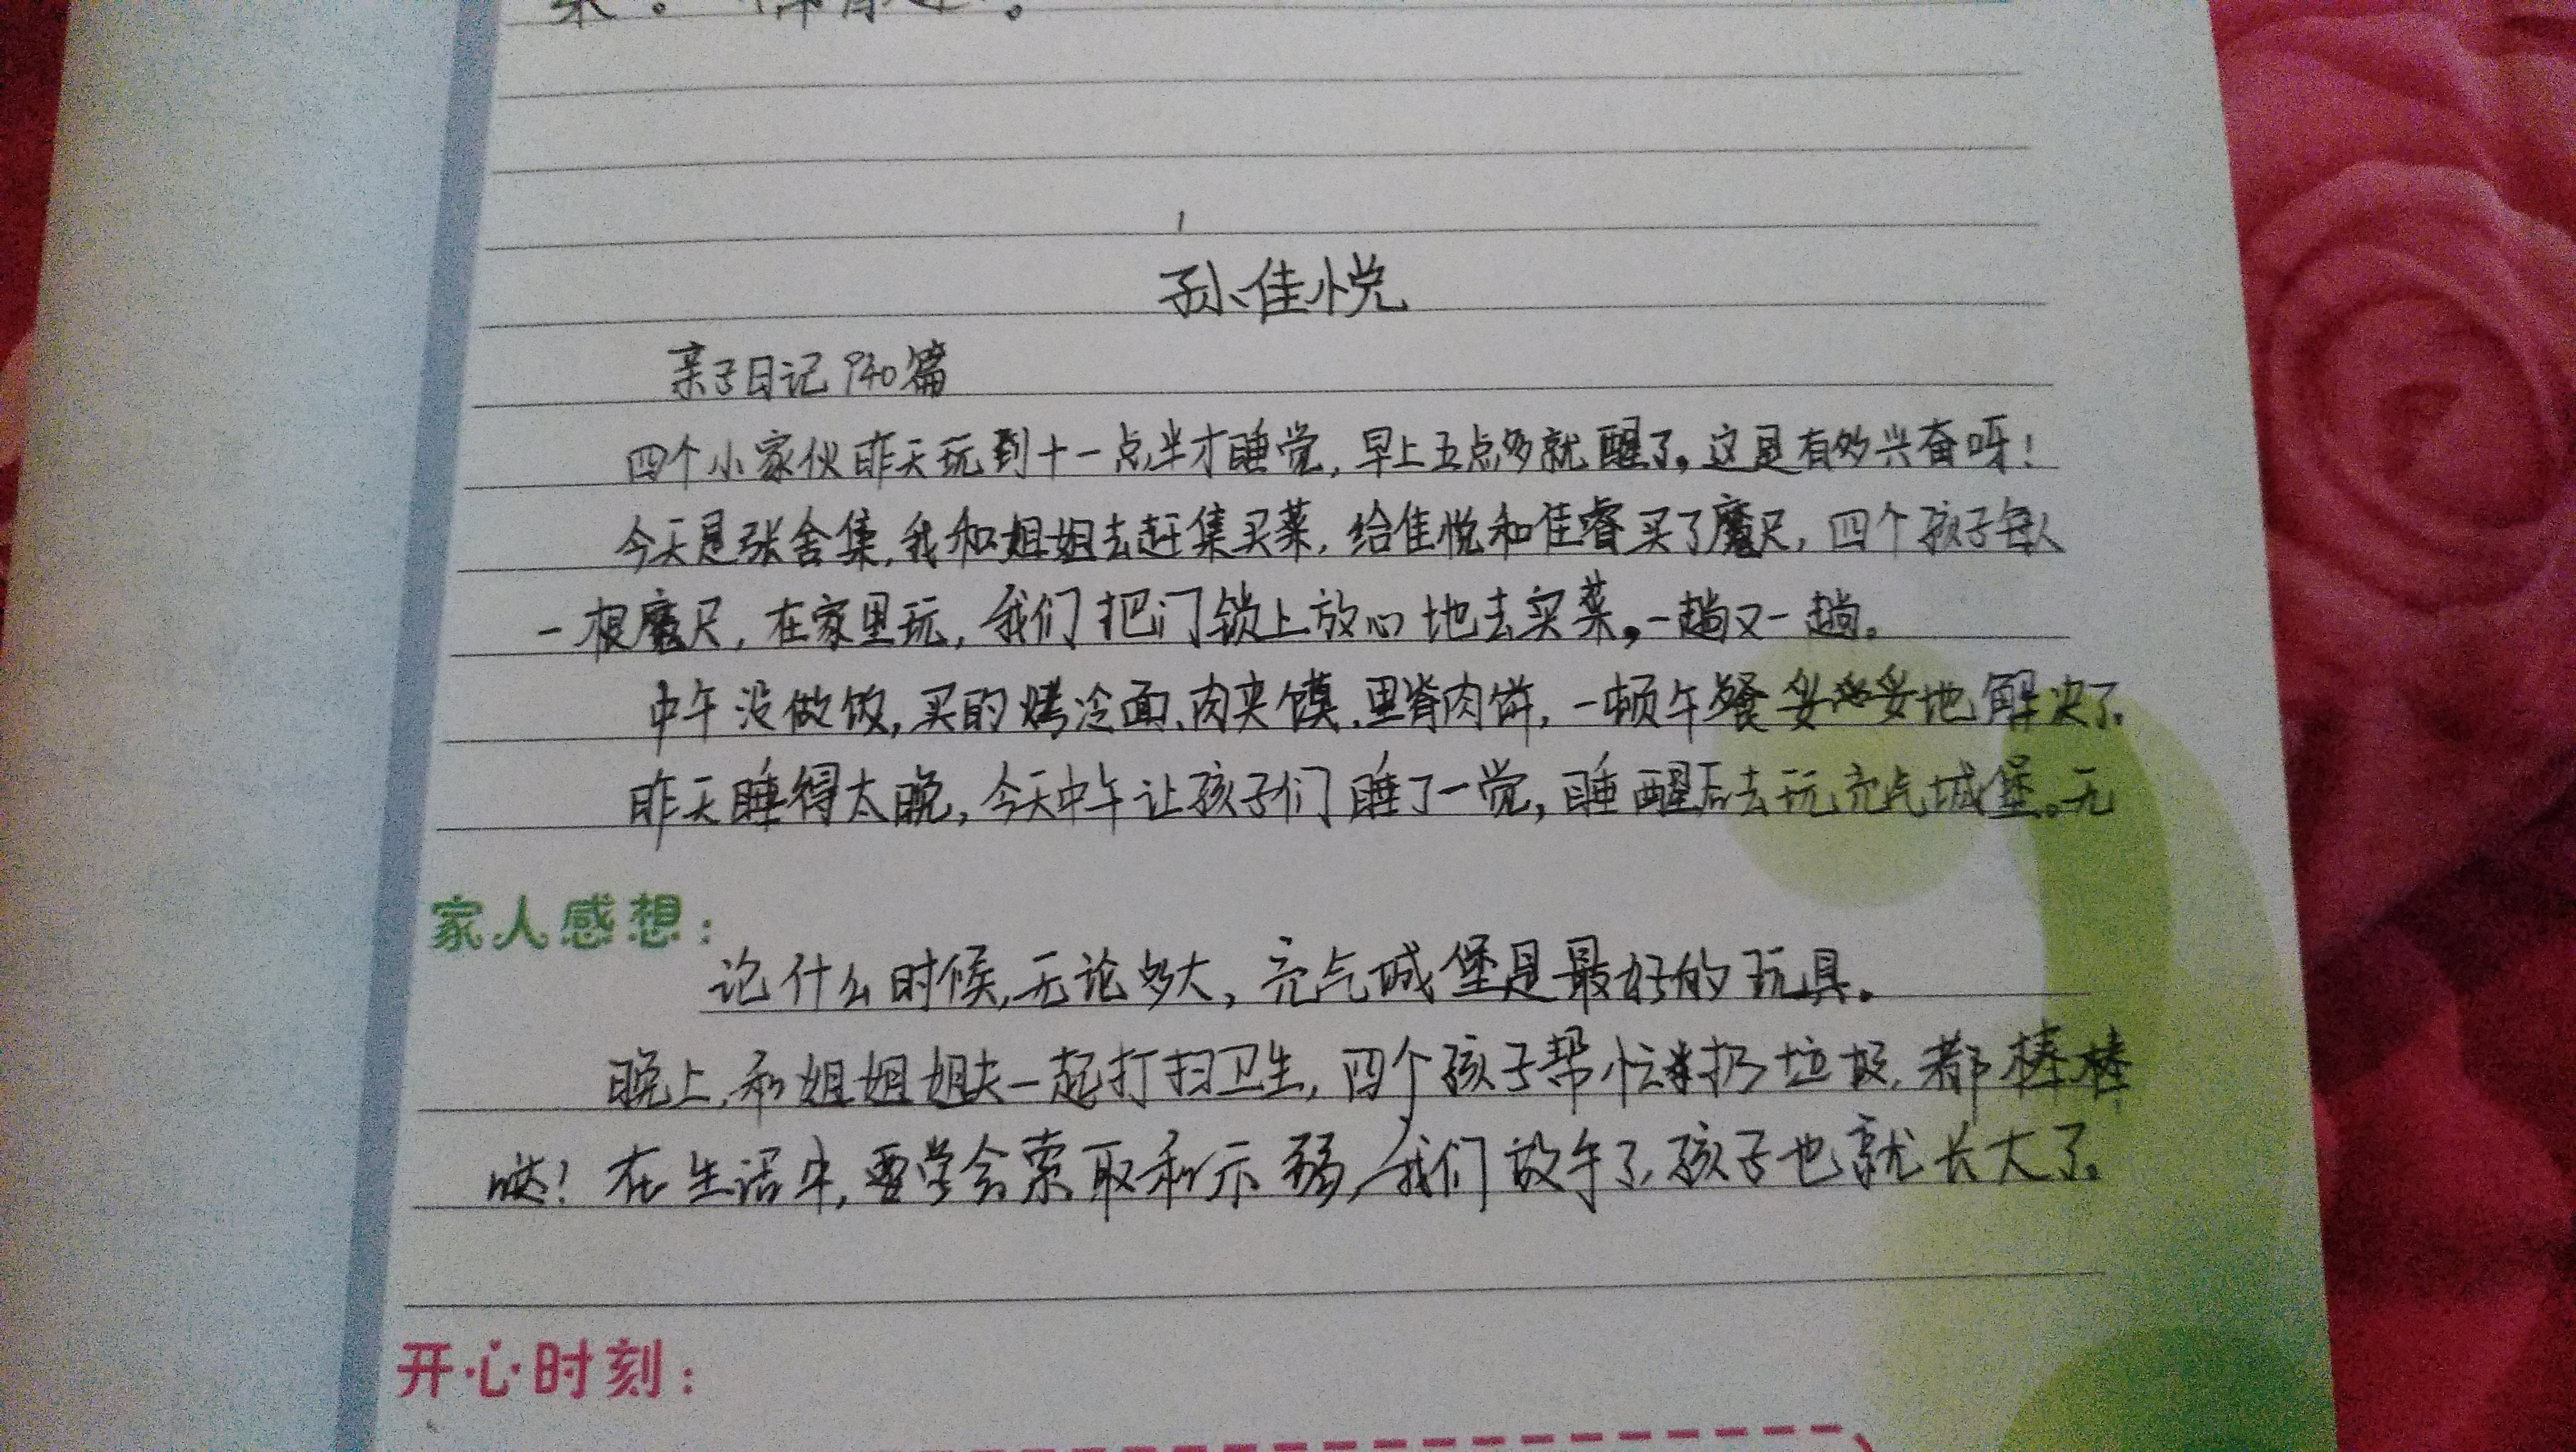 孙佳悦
亲子日记940篇
四个小家伙昨天玩到十一点半才睡觉,早上五点多就醒了。这是有多兴奋呀!
今天是张舍集,我和姐姐去赶集买菜,给佳悦和佳睿买了魔尺,四个孩子每人
一根魔尺,在家里玩,我们把门锁上放心地去买菜,一趟又一趟。
中午没做饭,买的烤冷面、肉夹馍、里脊肉饼,一顿午餐妥妥地解决了。
昨天睡得太晚,今天中午让孩子们睡了一觉,睡醒后去玩充气城堡。无
家人感想:
论什么时候,无论多大,充气城堡是最好的玩具。
晚上,和姐姐姐夫一起打扫卫生,四个孩子帮忙扔垃圾,都棒棒
哒!在生活中,要学会索取和示弱,我们放手了,孩子也就长大了。
开心时刻: